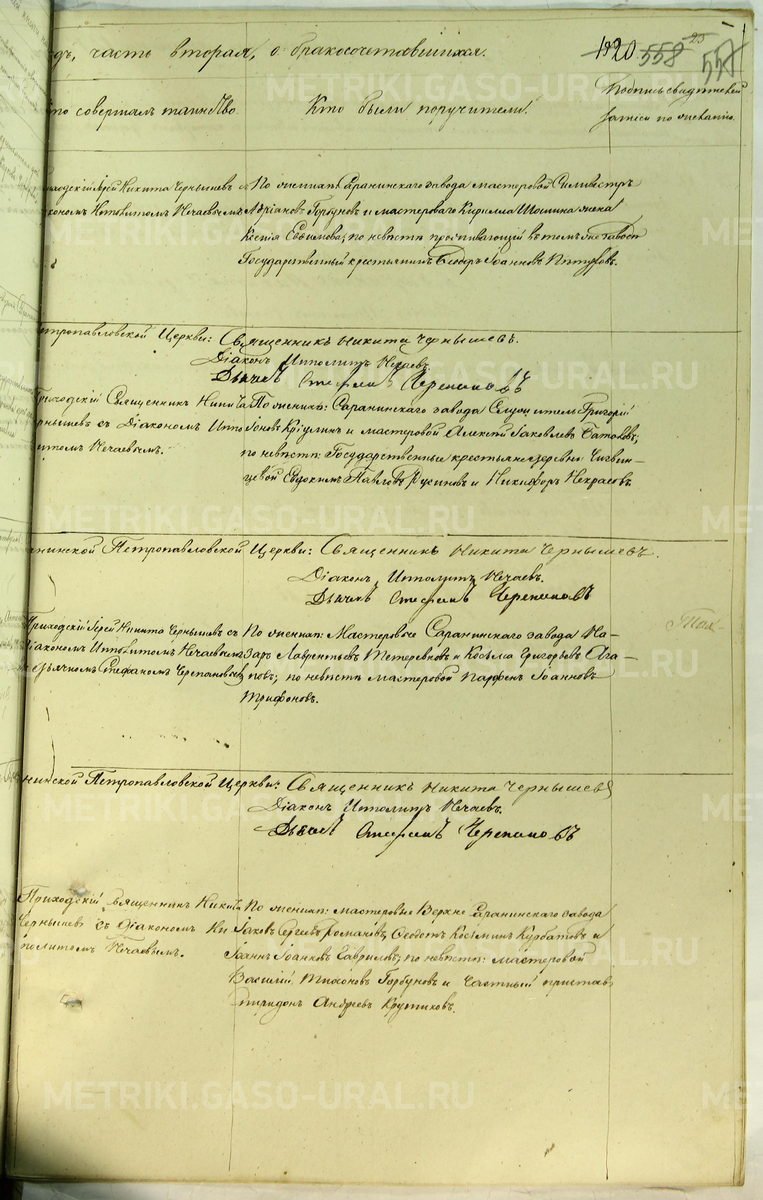 часть вторая, о бракосочетавшихся.
1920 558 25
557
кто совершалъ таинство.
Кто были поручители.
Подпись свидѣтелей записи по желанію.
Iерей Никита Чернышевъ съ
Діакономъ Ипполитомъ Нечаевымъ
По женихѣ: Саранинскаго завода мастеровой Сильвестръ
Адріановъ Горбуновъ и мастероваго Кирилла Шошина жена
Ксенія Евфимова; по невѣстѣ проживающій въ томъ же заводѣ
Государственный крестьянинъ Ѳеодоръ Іоанновъ
Петропавловской Церкви: Священникъ Никита Чернышевъ.
Діаконъ Ипполитъ Нечаевъ.
Дьячекъ Стефанъ Черепановъ
Приходскій Священникъ Никита
Чернышевъ съ Діакономъ Иппо
литомъ Нечаевымъ.
По женихѣ: Саранинскаго завода Григорій
Іоновъ и мастеровой Алексѣй Іаковлевъ
по невѣстѣ: Государственные крестьяне деревни
Евдокимъ Павловъ Русиновъ и Никифоръ Некрасовъ
Саранинской Петропавловской Церкви: Священникъ Никита Чернышевъ.
Діаконъ Ипполитъ Нечаевъ.
Дьячекъ Стефанъ Черепановъ
Приходскій Іерей Никита Чернышевъ съ
Діакономъ Ипполитомъ Нечаевымъ
и дьячкомъ Стефаномъ Черепановымъ
По женихѣ: Мастеровые Саранинскаго завода На-
заръ Лаврентьевъ Тетеревковъ и Косьма Григорьевъ Ага-
повъ; по невѣстѣ мастеровой Парфенъ Іоанновъ
Трифоновъ.
Саранинской Петропавловской Церкви: Священникъ Никита Чернышевъ
Діаконъ Ипполитъ Нечаевъ.
Дьячекъ Стефанъ Черепановъ
Приходскій священникъ Никита
Чернышевъ съ Діакономъ Ип
политомъ Нечаевымъ.
По женихѣ: мастеровые Верхне Саранинскаго завода
Іаковъ Сергѣевъ Романовъ, Ѳеодотъ Косминъ Курбатовъ и
Іоаннъ Іоанновъ Гавриловъ; по невѣстѣ: мастеровой
Василій Тихоновъ Горбуновъ и Частный приставъ
Спиридонъ Андреевъ Крутиковъ.
METRIKI.GASO-URAL.RU
METRIKI.GASO-URAL.RU
METRIKI.GASO-URAL.RU
METRIKI.GASO-URAL.RU
METRIKI.GASO-URAL.RU
METRIKI.GASO-URAL.RU
METRIKI.GASO-URAL.RU
METRIKI.GASO-URAL.RU